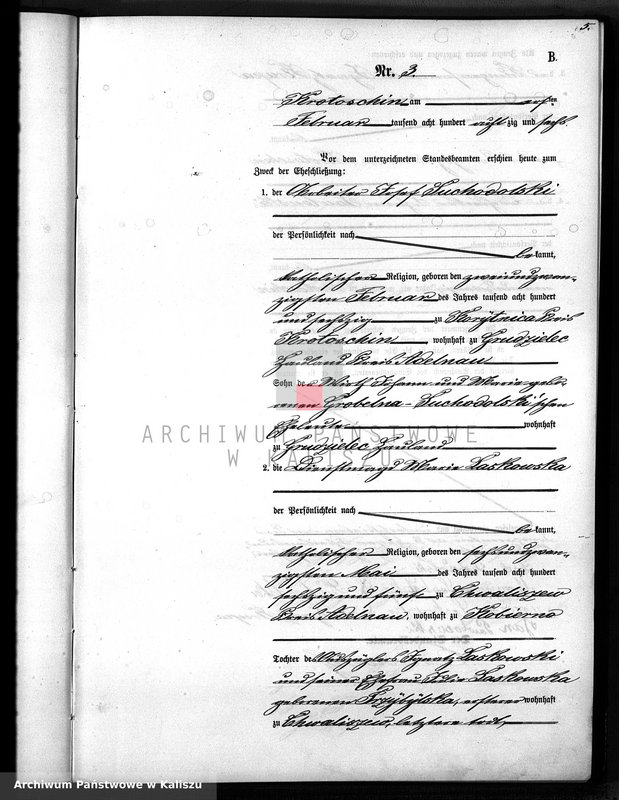 5.
B.
Nr. 3.
Krotoschin am ersten
Februar tausend acht hundert achtzig und sechs
Vor dem unterzeichneten Standesbeamten erschien heute zum
Zweck der Eheschließung:
1. der Arbeiter Josef Suchodolski
der Persönlichkeit nach
bekannt,
katholischer Religion, geboren den zweiundzwan-
zigsten Februar des Jahres tausend acht hundert
und sechszig zu Korytnica Kreis
Krotoschin, wohnhaft zu Grudzielec
Hauland Kreis Adelnau
Sohn des Wirth Johann und Maria gebo-
renen Grobelna-Suchodolski'schen
Eheleute wohnhaft
zu Grudzielec Hauland
2. die Dienstmagd Maria Laskowska
der Persönlichkeit nach
bekannt,
katholischer Religion, geboren den sechsundzwan-
zigsten Mai des Jahres tausend acht hundert
sechszig und fünf zu Chwaliszew
Kreis Adelnau, wohnhaft zu Kobierno
Tochter des Auszüglers Ignatz Laskowski
und seiner Ehefrau Laskowska
geborenen Przybylska, ersterer wohnhaft
zu Chwaliszew, letztere todt,
ARCHIWUM PAŃSTWOWE
W KALISZU
Archiwum Państwowe w Kaliszu